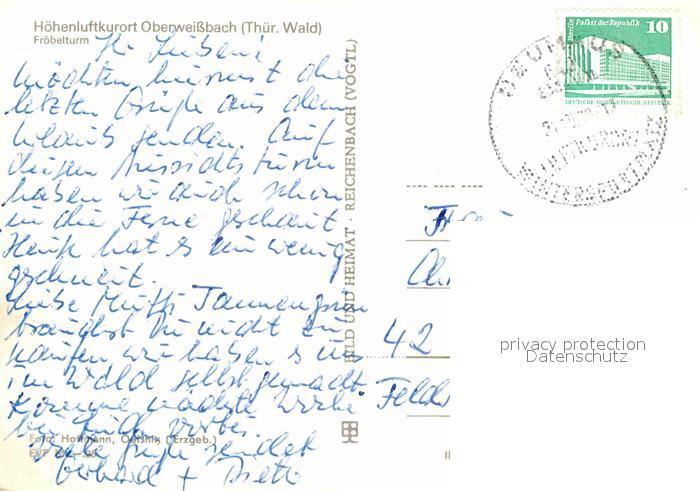 Höhenluftkurort Oberweißbach (Thür. Wald)
Fröbelturm
Ihr Lieben!
möchten hiermit die
letzten Grüße aus dem
Urlaub senden. Auf
diesen Aussichtsturm
haben wir auch schon
in die Ferne geschaut
Heute hat es ein wenig
geschneit.
Liebe Mutti Tannengrün
brauchst Du nicht zu
kaufen wir haben es uns
im Wald selbst gemacht
Komme nächste Woche
bei Euch vorbei
Foto: Hoffmann, Oelsnitz (Erzgeb.)
EVP
Liebe Grüße sendet
Gerhard +
BILD UND HEIMAT · REICHENBACH (VOGTL)
Berlin Palast der Republik
10
DEUTSCHE DEMOKRATISCHE REPUBLIK
WINTERSPORTPLATZ
42
Felds
privacy protection
Datenschutz